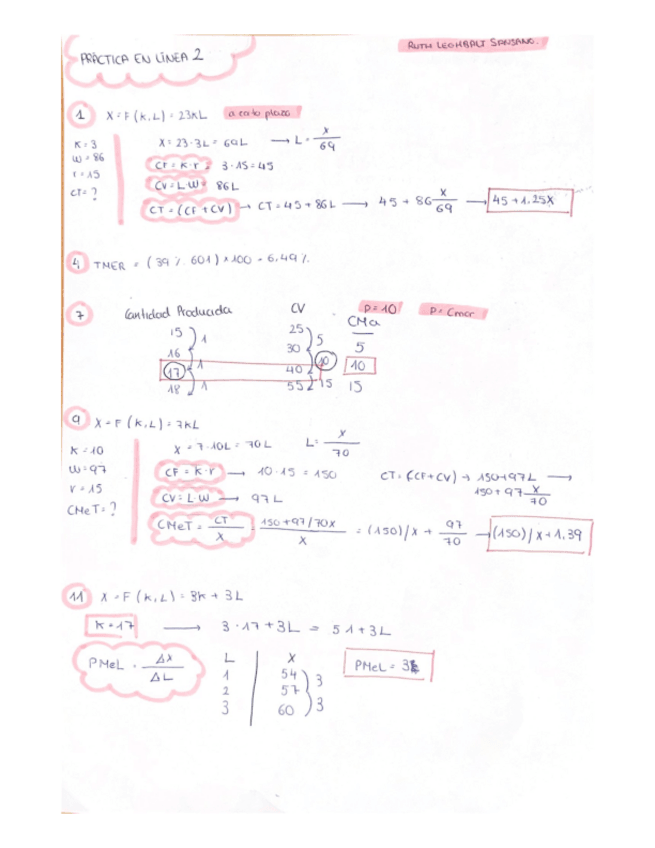 PRÁCTICA EN LÍNEA 2
RUTH LEONHALT SANSANO.
1 X = F (K, L) = 23KL a corto plazo
K = 3
W = 86
r = 15
CT = ?
X = 23·3L = 69L → L = X/69
CF = K·r = 3·15 = 45
CV = L·W = 86L
CT = (CF + CV) → CT = 45 + 86L → 45 + 86 X/69 → 45 + 1.25X
4 TMER = (39 % 601) × 100 = 6.49 %
7 Cantidad Producida CV P = 10 P = Cmar
CMa
15 1 25 5 5
16 1 30 10 10
17 1 40 15 15
18 55
9 X = F (K, L) = 7KL
K = 10
W = 97
r = 15
CMeT = ?
X = 7·10L = 70L L = X/70
CF = K·r → 10·15 = 150
CT = (CF + CV) → 150 + 97L →
150 + 97 X/70
CV = L·W → 97L
CMeT = CT/X = 150 + 97/70X / X = (150)/X + 97/70 → (150)/X + 1.39
11 X = F (K, L) = 3K + 3L
K = 17 → 3·17 + 3L = 51 + 3L
PMeL = ΔX/ΔL
L X
1 54 3
2 57 3
3 60
PMeL = 3